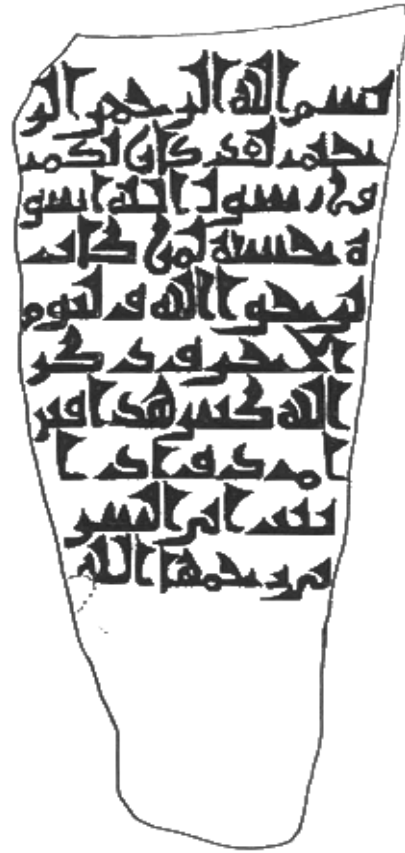 بسم الله الرحمن الر
حيم لقد كان لكم
في رسول الله اسو
ة حسنة لمن كان
يرجوا الله واليوم
الاخر وذكر
الله كثير هذا قبر
بنت
يرحمها الله